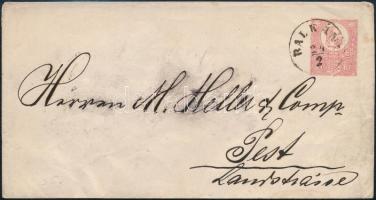 Herren M. Heller & Comp
Pest
Landstrasse